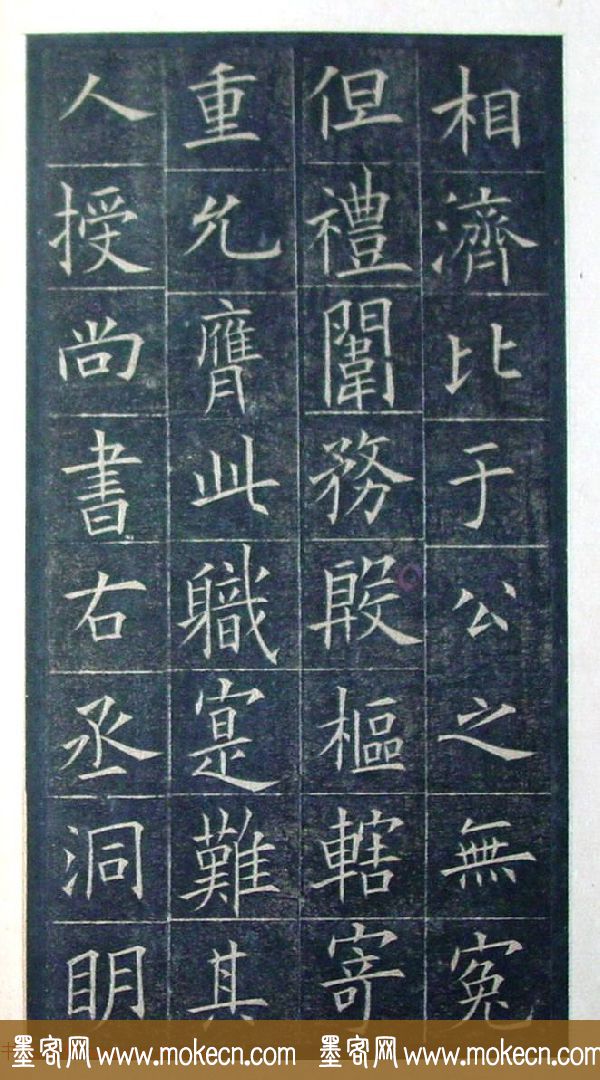 相濟比于公之無寃
但禮闈務殷樞轄寄
重允膺此職寔難其
人授尚書右丞洞明
墨客网 www.mokecn.com 墨客网 www.mokecn.com